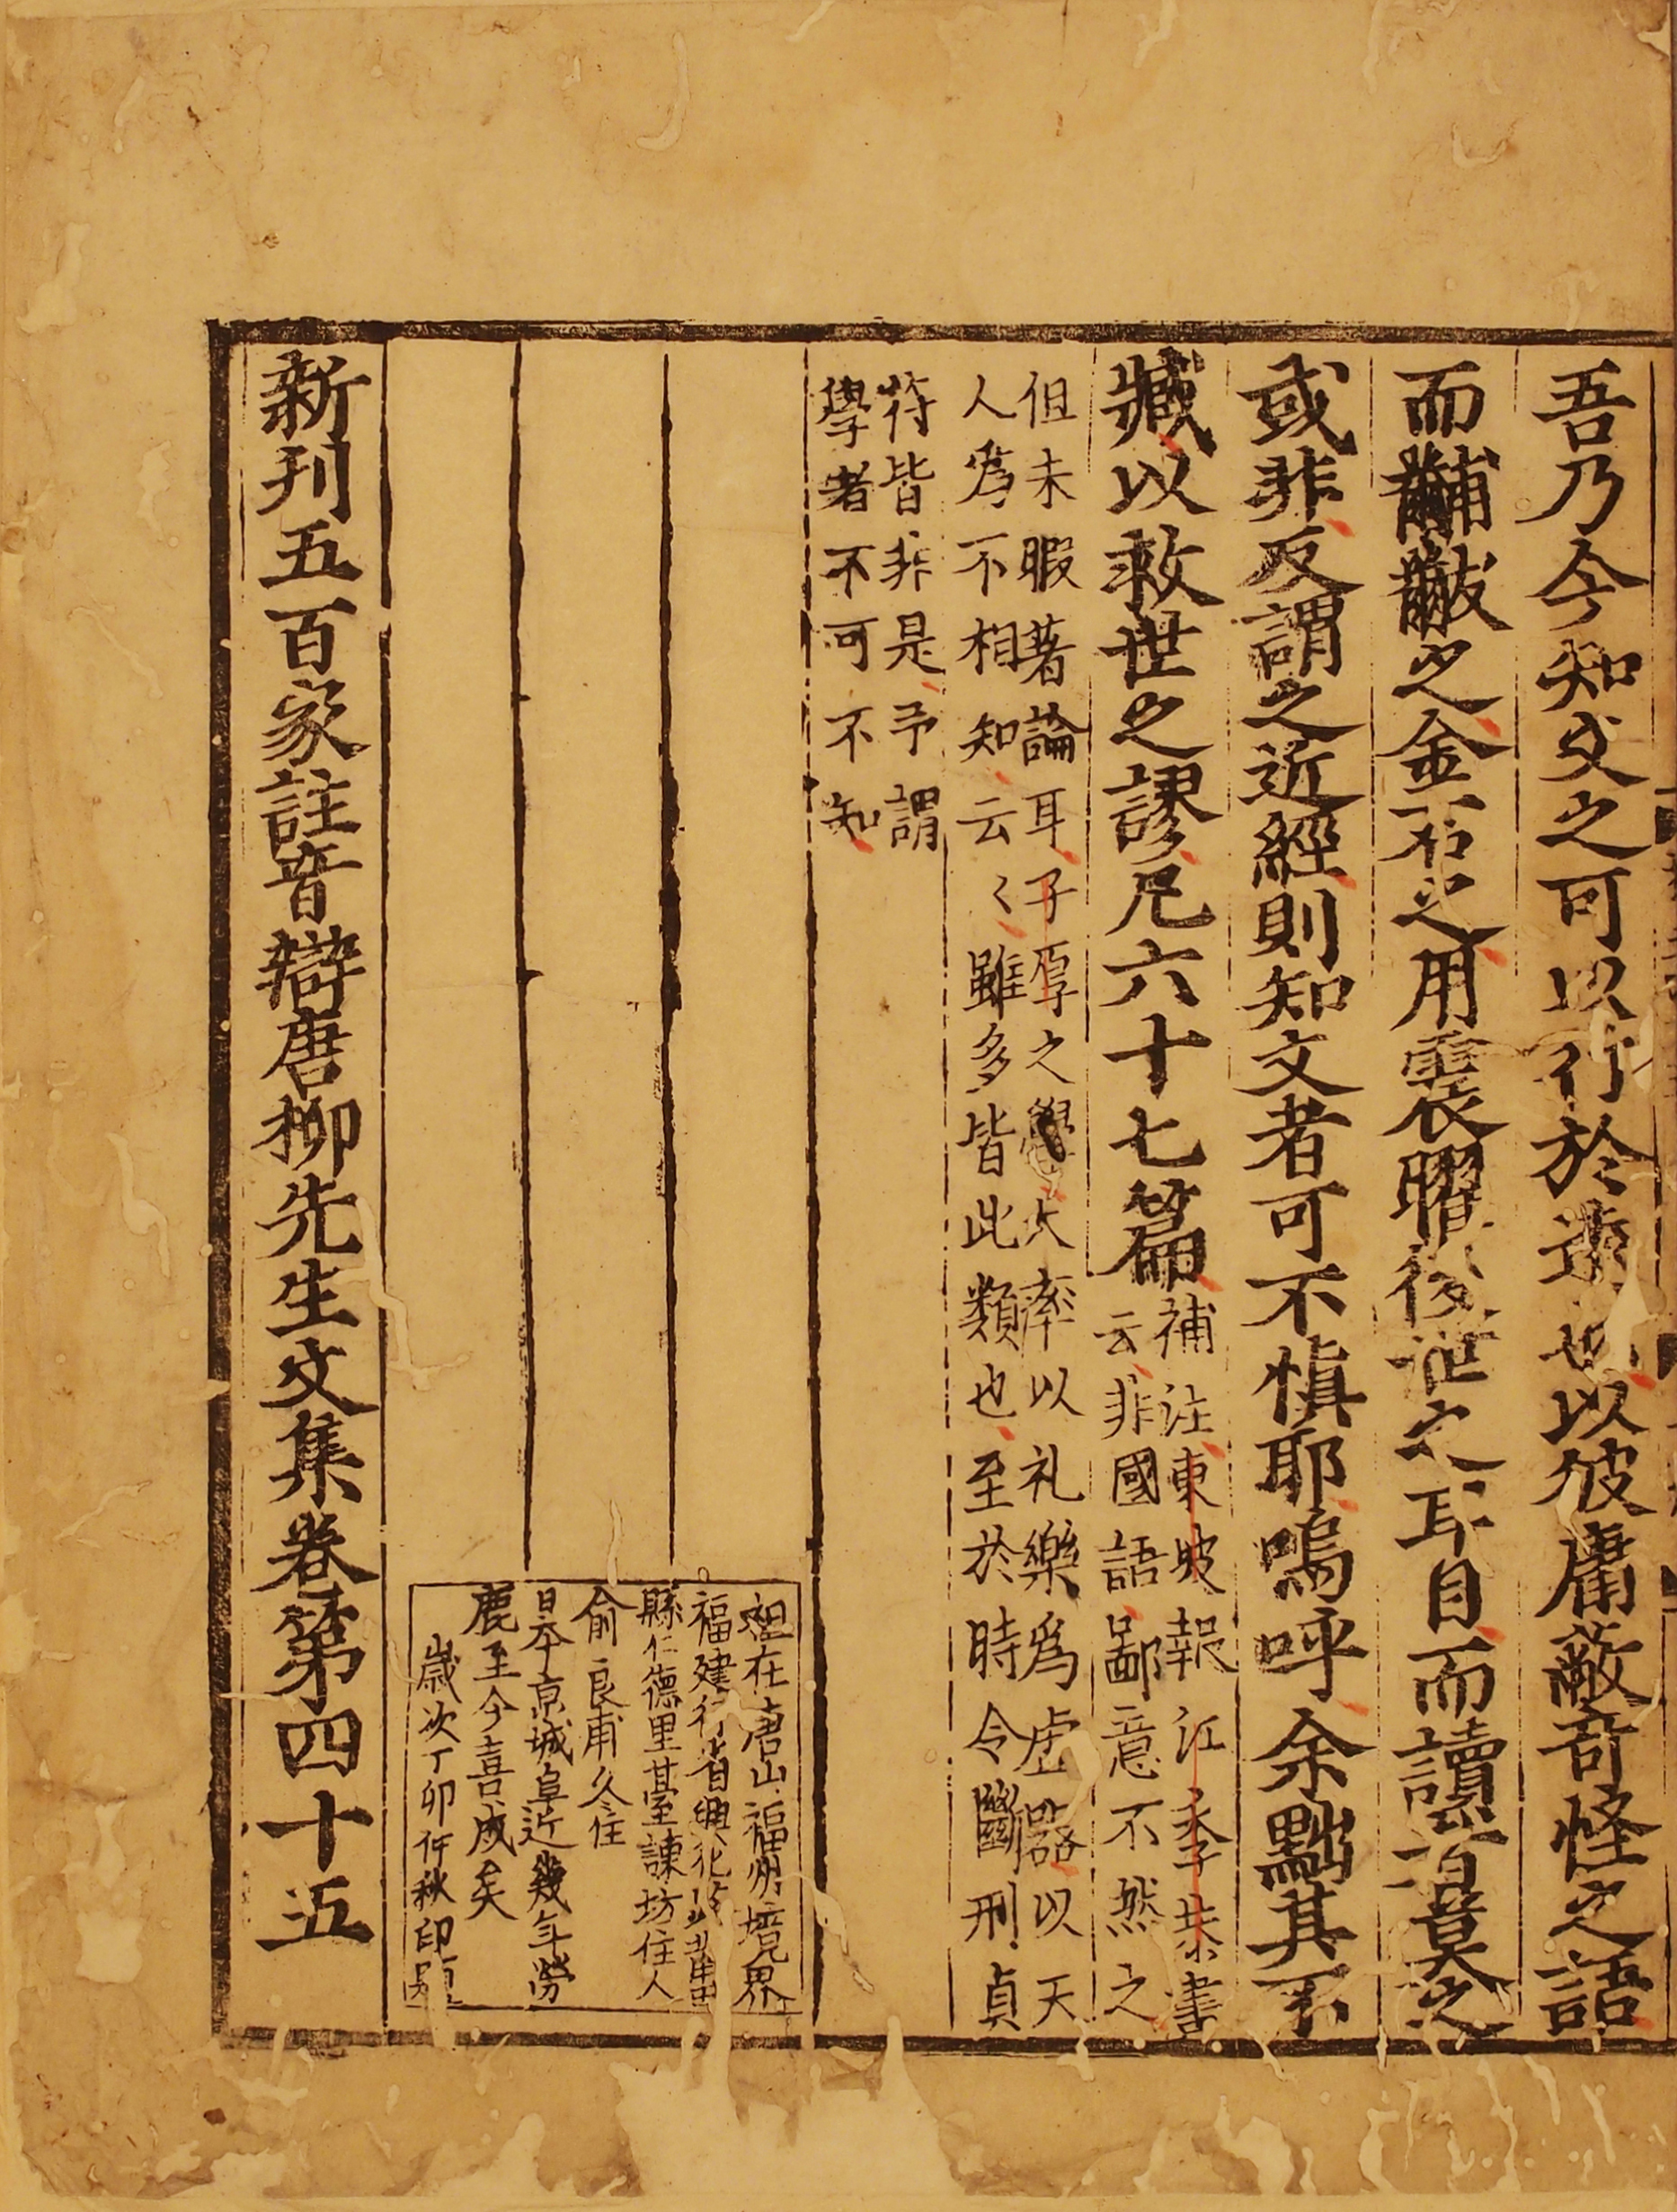 吾乃今知文之可以行於遠也以彼庸蔽奇怪之語
而黼黻之金石之用震曜後世之耳目而讀者莫之
或非反謂之近經則知文者可不慎耶嗚呼余黜其不
臧以救世之謬凡六十七篇
補注東坡報江季恭書
云非國語鄙意不然之
但未暇著論耳子厚之學大率以礼樂為虛器以天
人為不相知云〻雖多皆此類也至於時令斷刑貞
符皆非是予謂
學者不可不知
在唐山福州境界
福建行省興化路莆田
縣仁德里臺諫坊住人
俞良甫久住
日本京城阜近幾年勞
鹿至今喜成矣
歲次丁卯仲秋印題
新刊五百家註音辯唐柳先生文集卷第四十五